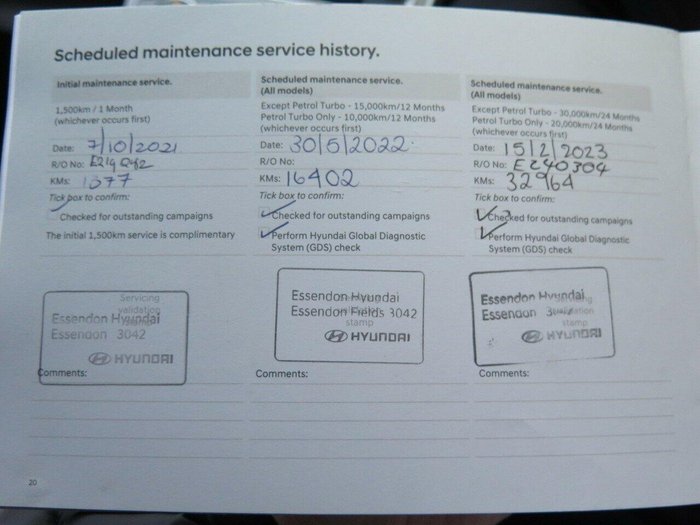 Scheduled maintenance service history.
Initial maintenance service.
1,500km / 1 Month
(whichever occurs first)
Date: 7/10/2021
R/O No:
KMs: 1377
Tick box to confirm:
Checked for outstanding campaigns
The initial 1,500km service is complimentary
Servicing
validation
stamp
Essendon Hyundai
Essendon 3042
HYUNDAI
Comments:
Scheduled maintenance service.
(All models)
Except Petrol Turbo - 15,000km/12 Months
Petrol Turbo Only - 10,000km/12 Months
(whichever occurs first)
Date: 30/5/2022
R/O No:
KMs: 16402
Tick box to confirm:
Checked for outstanding campaigns
Perform Hyundai Global Diagnostic
System (GDS) check
Essendon Hyundai
Essendon Fields 3042
stamp
HYUNDAI
Comments:
Scheduled maintenance service.
(All models)
Except Petrol Turbo - 30,000km/24 Months
Petrol Turbo Only - 20,000km/24 Months
(whichever occurs first)
Date: 15/2/2023
R/O No: E240304
KMs: 32964
Tick box to confirm:
Checked for outstanding campaigns
Perform Hyundai Global Diagnostic
System (GDS) check
Essendon Hyundai
Essendon
HYUNDAI
Comments:
20